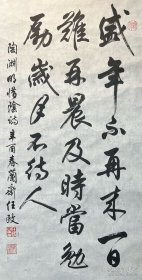 盛年不再来一日
難再晨及時當勉
勵歲月不待人
陶淵明惜陰詩辛酉春蘭齋任政